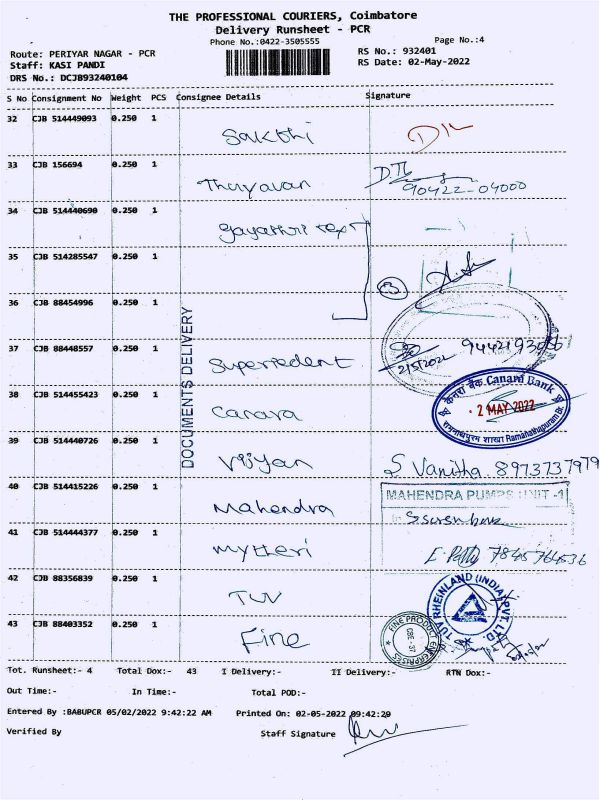 THE PROFESSIONAL COURIERS, Coimbatore
Delivery Runsheet - PCR
Phone No.:0422-3505555
Page No.:4
Route: PERIYAR NAGAR - PCR
RS No.: 932401
Staff: KASI PANDI
RS Date: 02-May-2022
DRS No.: DCJB93240104
S No Consignment No Weight PCS Consignee Details Signature
32 CJB 514449093 0.250 1 Sakthi
33 CJB 156694 0.250 1 Thuyavan
90422-04000
34 CJB 514440690 0.250 1 Gayathri
35 CJB 514285547 0.250 1
3
36 CJB 88454996 0.250 1
DOCUMENTS DELIVERY
37 CJB 88448557 0.250 1
2/5/2022
38 CJB 514455423 0.250 1 Canara
केनरा बैंक Canara Bank
2 MAY 2022
रामनाथपुरम शाखा Ramanathapuram Br.
39 CJB 514440726 0.250 1 S Vanitha. 8973737979
40 CJB 514415226 0.250 1 Mahendra
MAHENDRA PUMPS UNIT -1
41 CJB 514444377 0.250 1 Mytteri
7845764536
42 CJB 88356839 0.250 1 TUV
TUV RHEINLAND (INDIA) PVT. LTD.
43 CJB 88403352 0.250 1 Fine
FINE PRODUCT ENTERPRISES
CBE-37
Tot. Runsheet:- 4 Total Dox:- 43 I Delivery:- II Delivery:- RTN Dox:-
Out Time:- In Time:- Total POD:-
Entered By :BABUPCR 05/02/2022 9:42:22 AM Printed On: 02-05-2022 09:42:29
Verified By Staff Signature